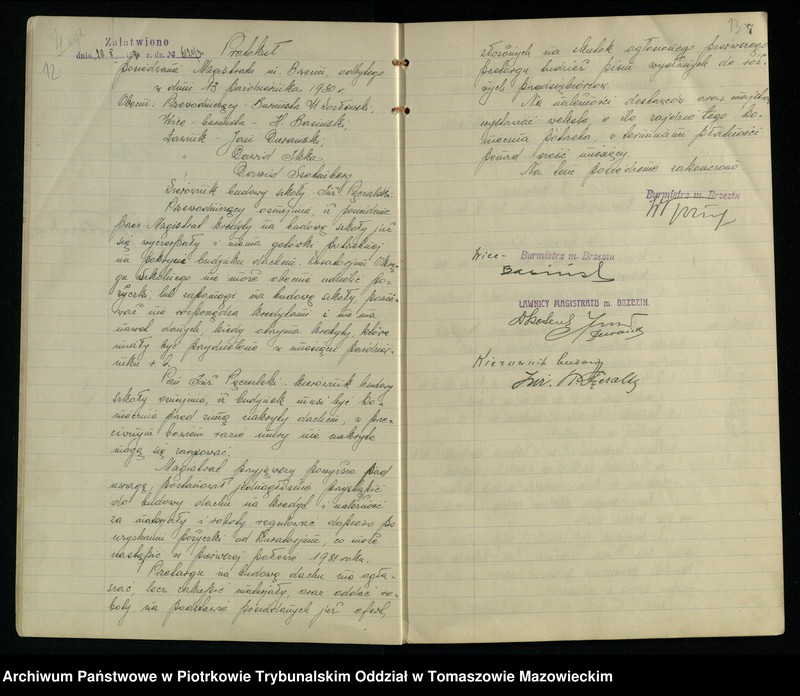 Załatwiono
dnia 10 X r. dz. №
12
Protokół
posiedzenia Magistratu m. Brzezin, odbytego
w dniu 13 października 1930 r.
Obecni: Przewodniczący - Burmistrz
Wice-burmistrz - H. Basiński,
Ławnik Jan
" Dawid
" Dawid Szotenberg
Kierownik budowy szkoły Inż. Pęczalski.
Przewodniczący oznajmia, iż posiadane
przez Magistrat kredyty na budowę szkoły już
się wyczerpały i niema gotówki potrzebnej
na pokrycie budynku dachem. Kuratorjum Okrę-
gu Szkolnego nie może obecnie udzielić po-
życzki, lub zapomogi na budowę szkoły, ponie-
waż nie rozporządza kredytami i nie ma
nawet danych, kiedy otrzyma kredyty, które
miały być przydzielone w miesiącu paździer-
niku r. b.
Pan Inż. Pęczalski - kierownik budowy
szkoły oznajmia, iż budynek musi być ko-
niecznie przed zimą nakryty dachem, w prze-
ciwnym bowiem razie mury nie nakryte
mogą się zarysować.
Magistrat przyjąwszy powyższe pod
uwagę, postanowił jednogłośnie przystąpić
do budowy dachu na kredyt i należność
za materjały i roboty regulować dopiero po
uzyskaniu pożyczki od Kuratorjum, co może
nastąpić w pierwszej połowie 1931 roku.
Przetargu na budowę dachu nie ogła-
szać, lecz zakupić materjały, oraz oddać ro-
boty na podstawie posiadanych już ofert,
13
złożonych na skutek ogłoszonego pierwszego
przetargu tudzież pism wysłanych do róż-
nych przedsiębiorców.
Na należności dostawców oraz majstrów
wystawiać weksle, o ile zajdzie tego ko-
nieczna potrzeba, z terminami płatności
ponad sześć miesięcy.
Na tem posiedzenie zakończono
Burmistrz m. Brzezin
Wice- Burmistrz m. Brzezin
Basiński
ŁAWNICY MAGISTRATU m. BRZEZIN.
Kierownik budowy
Inż.
Archiwum Państwowe w Piotrkowie Trybunalskim Oddział w Tomaszowie Mazowieckim